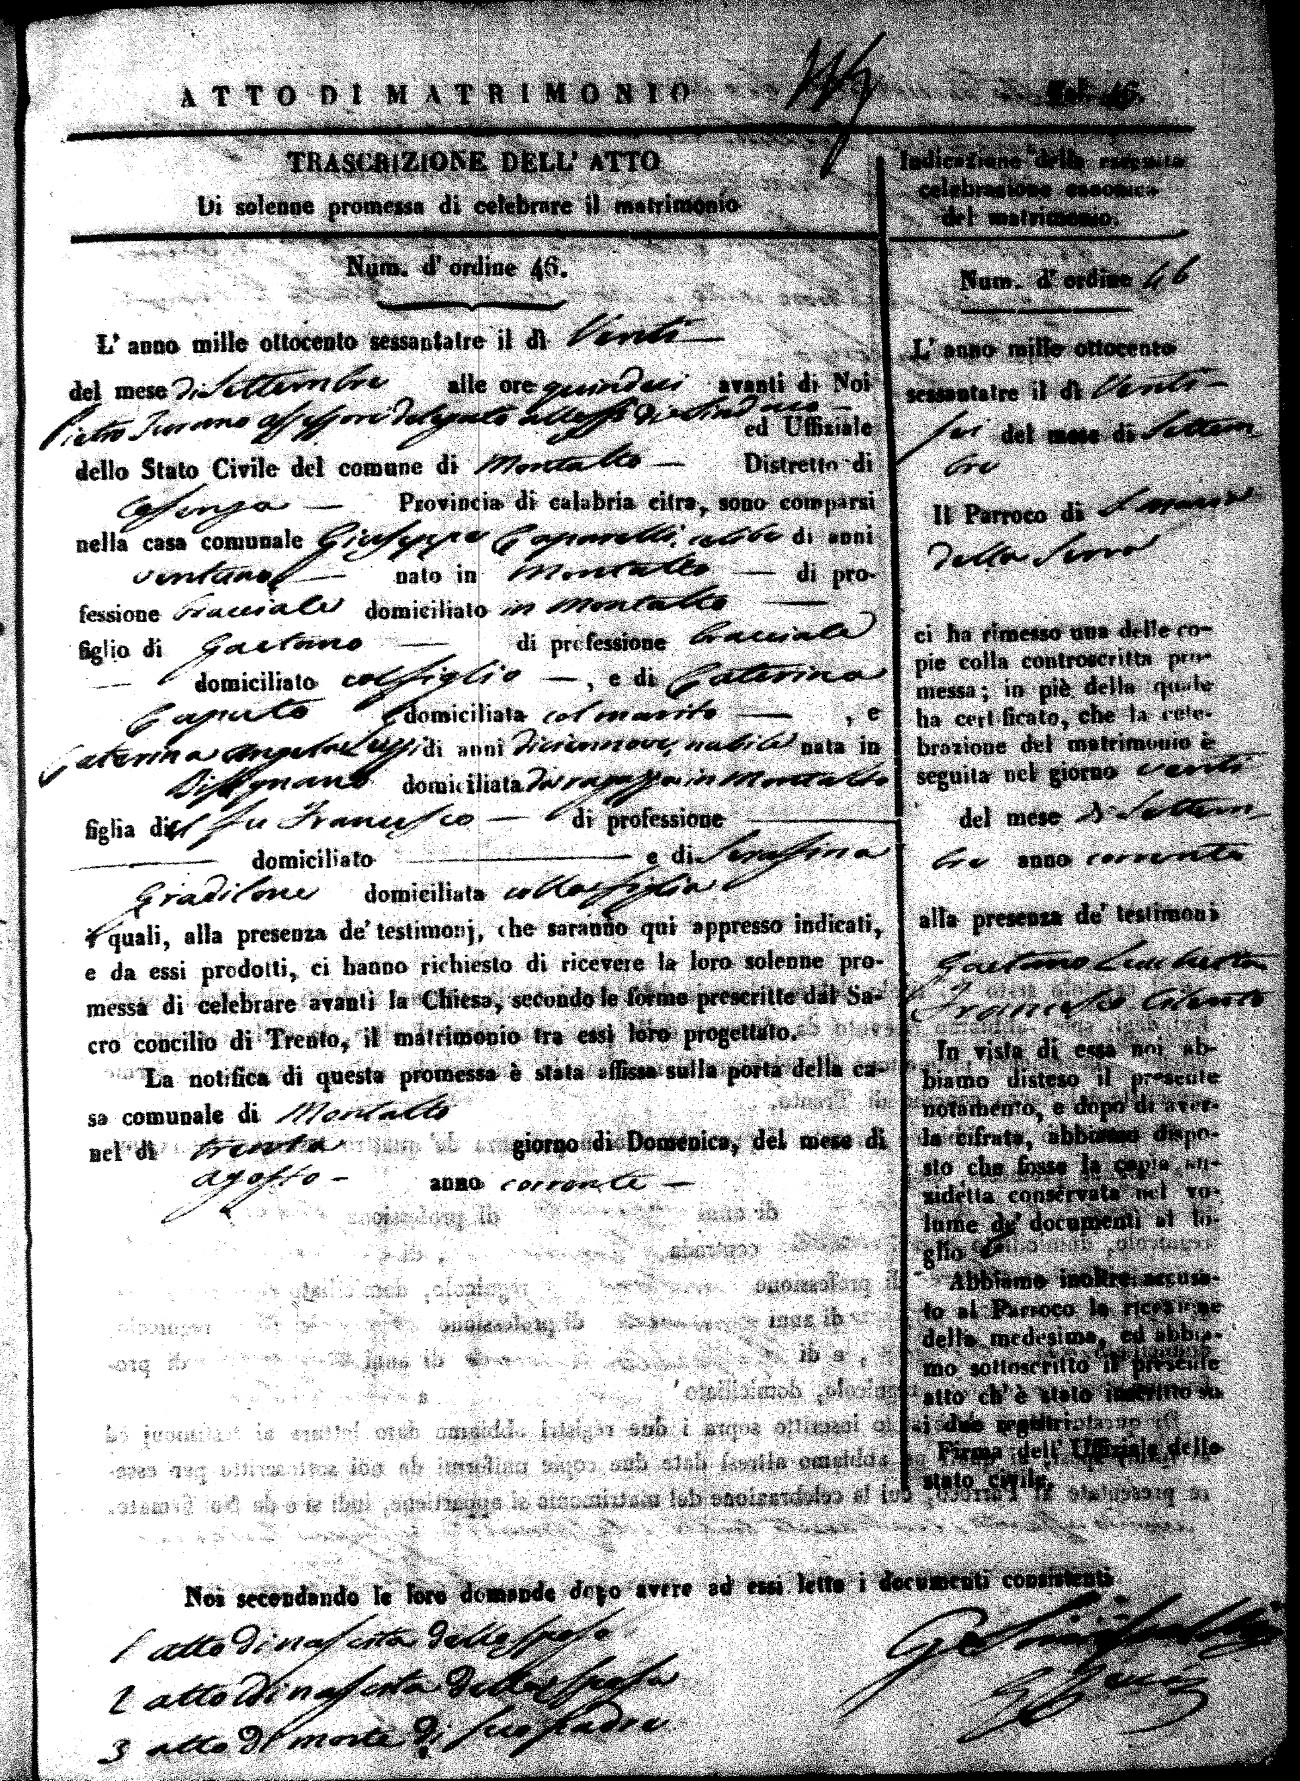 ATTO DI MATRIMONIO
TRASCRIZIONE DELL' ATTO
Di solenne promessa di celebrare il matrimonio
Num. d' ordine 46.
L' anno mille ottocento sessantatre il dì Venti
del mese di Settembre alle ore quindeci avanti di Noi
Pietro assessore delegato di Sindaco
ed Uffiziale
dello Stato Civile del comune di Montalto — Distretto di
Cosenza — Provincia di calabria citra, sono comparsi
nella casa comunale Giuseppe celibe di anni
ventuno — nato in Montalto — di pro-
fessione bracciale domiciliato in Montalto —
figlio di Gaetano — di professione bracciale
— domiciliato col figlio —, e di Caterina
Caputo domiciliata col marito — , e
Caterina Angela di anni diciannove, nubile nata in
domiciliata da ragazza in Montalto
figlia del fu Francesco — di professione —
— domiciliato — e di Serafina
Gradilone domiciliata colla figlia
I quali, alla presenza de' testimonj, che saranno qui appresso indicati,
e da essi prodotti, ci hanno richiesto di ricevere la loro solenne pro-
messa di celebrare avanti la Chiesa, secondo le forme prescritte dal Sa-
cro concilio di Trento, il matrimonio tra essi loro progettato.
La notifica di questa promessa è stata affissa sulla porta della ca-
sa comunale di Montalto
nel dì trenta giorno di Domenica, del mese di
agosto — anno corrente —
Noi secondando le loro domande dopo avere ad essi letto i documenti consistenti
1 atto di nascita dello sposo
2 atto di nascita della sposa
3 atto di morte di suo padre
Indicazione della seguita
celebrazione canonica
del matrimonio.
Num. d' ordine 46
L' anno mille ottocento
sessantatre il dì Venti-
sei del mese di Settem
bre
Il Parroco di S Maria
della Serra
ci ha rimesso una delle co-
pie colla controscritta pro-
messa; in piè della quale
ha certificato, che la cele-
brazione del matrimonio è
seguita nel giorno venti
del mese di Settem-
bre anno corrente
alla presenza de' testimoni
Gaetano
Francesco Cilento
In vista di essa noi ab-
biamo disteso il presente
notamento, e dopo di aver-
la cifrata, abbiamo dispo-
sto che fosse la copia an-
zidetta conservata nel vo-
lume de' documenti al fo-
glio
Abbiamo inoltre accusa-
to al Parroco la ricezione
della medesima, ed abbia-
mo sottoscritto il presente
atto ch' è stato inscritto su
i due registri.
Firma dell' Uffiziale dello
stato civile.